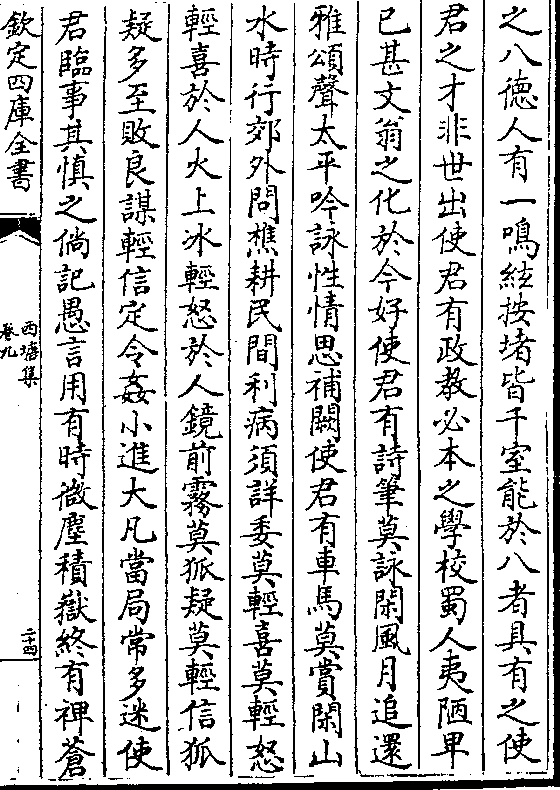 之八德人有一鳴絃按堵皆千室能於八者具有之使
君之才非世出使君有政教必本之學校蜀人夷陋卑
已甚文翁之化於今好使君有詩筆莫詠閑風月追還
雅頌聲太平吟詠性情思補闕使君有車馬莫賞閑山
水時行郊外問樵耕民間利病須詳委莫輕喜莫輕怒
輕喜於人火上冰輕怒於人鏡前霧莫狐疑莫輕信狐
疑多至敗良謀輕信定令姦小進大凡當局常多迷使
君臨事其慎之倘記愚言用有時微塵積嶽終有裨蒼
欽定四庫全書
西塘集
卷九
二十四